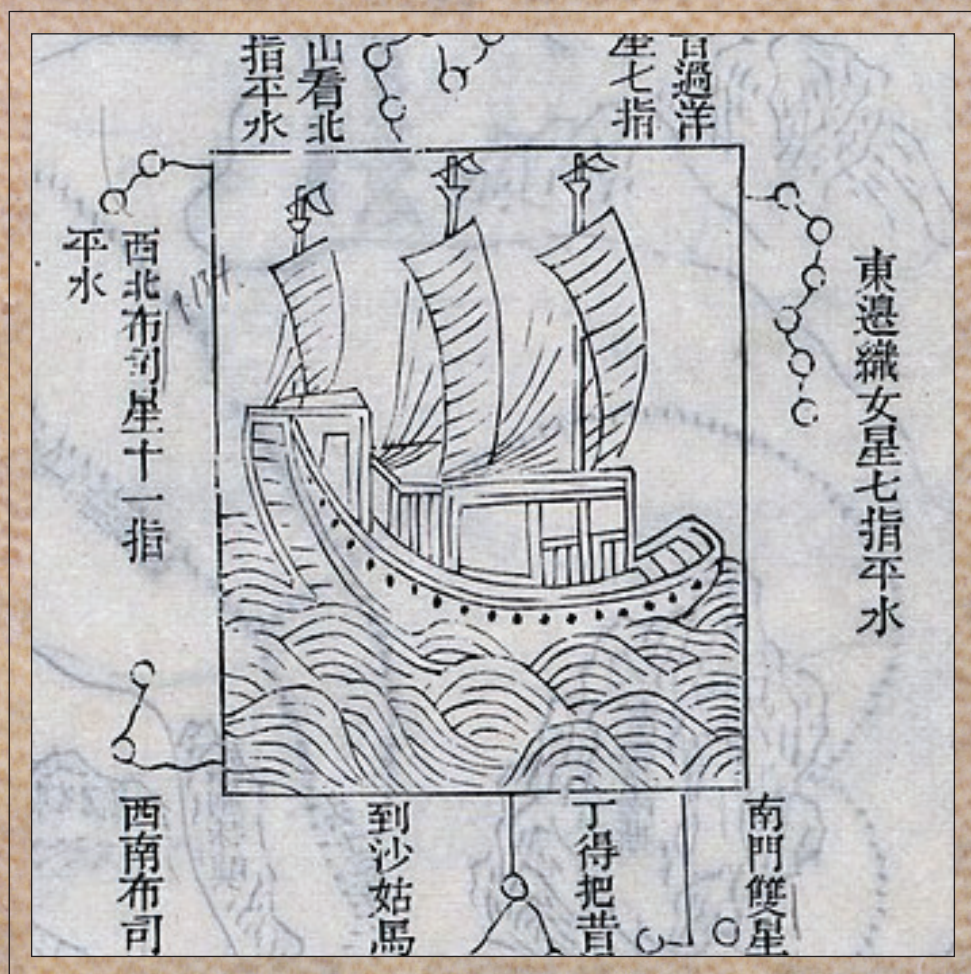 看過洋
星七指
山看北
指平水
東邉織女星七指平水
西北布司星十一指
平水
南門雙星
丁得把昔
到沙姑馬
西南布司